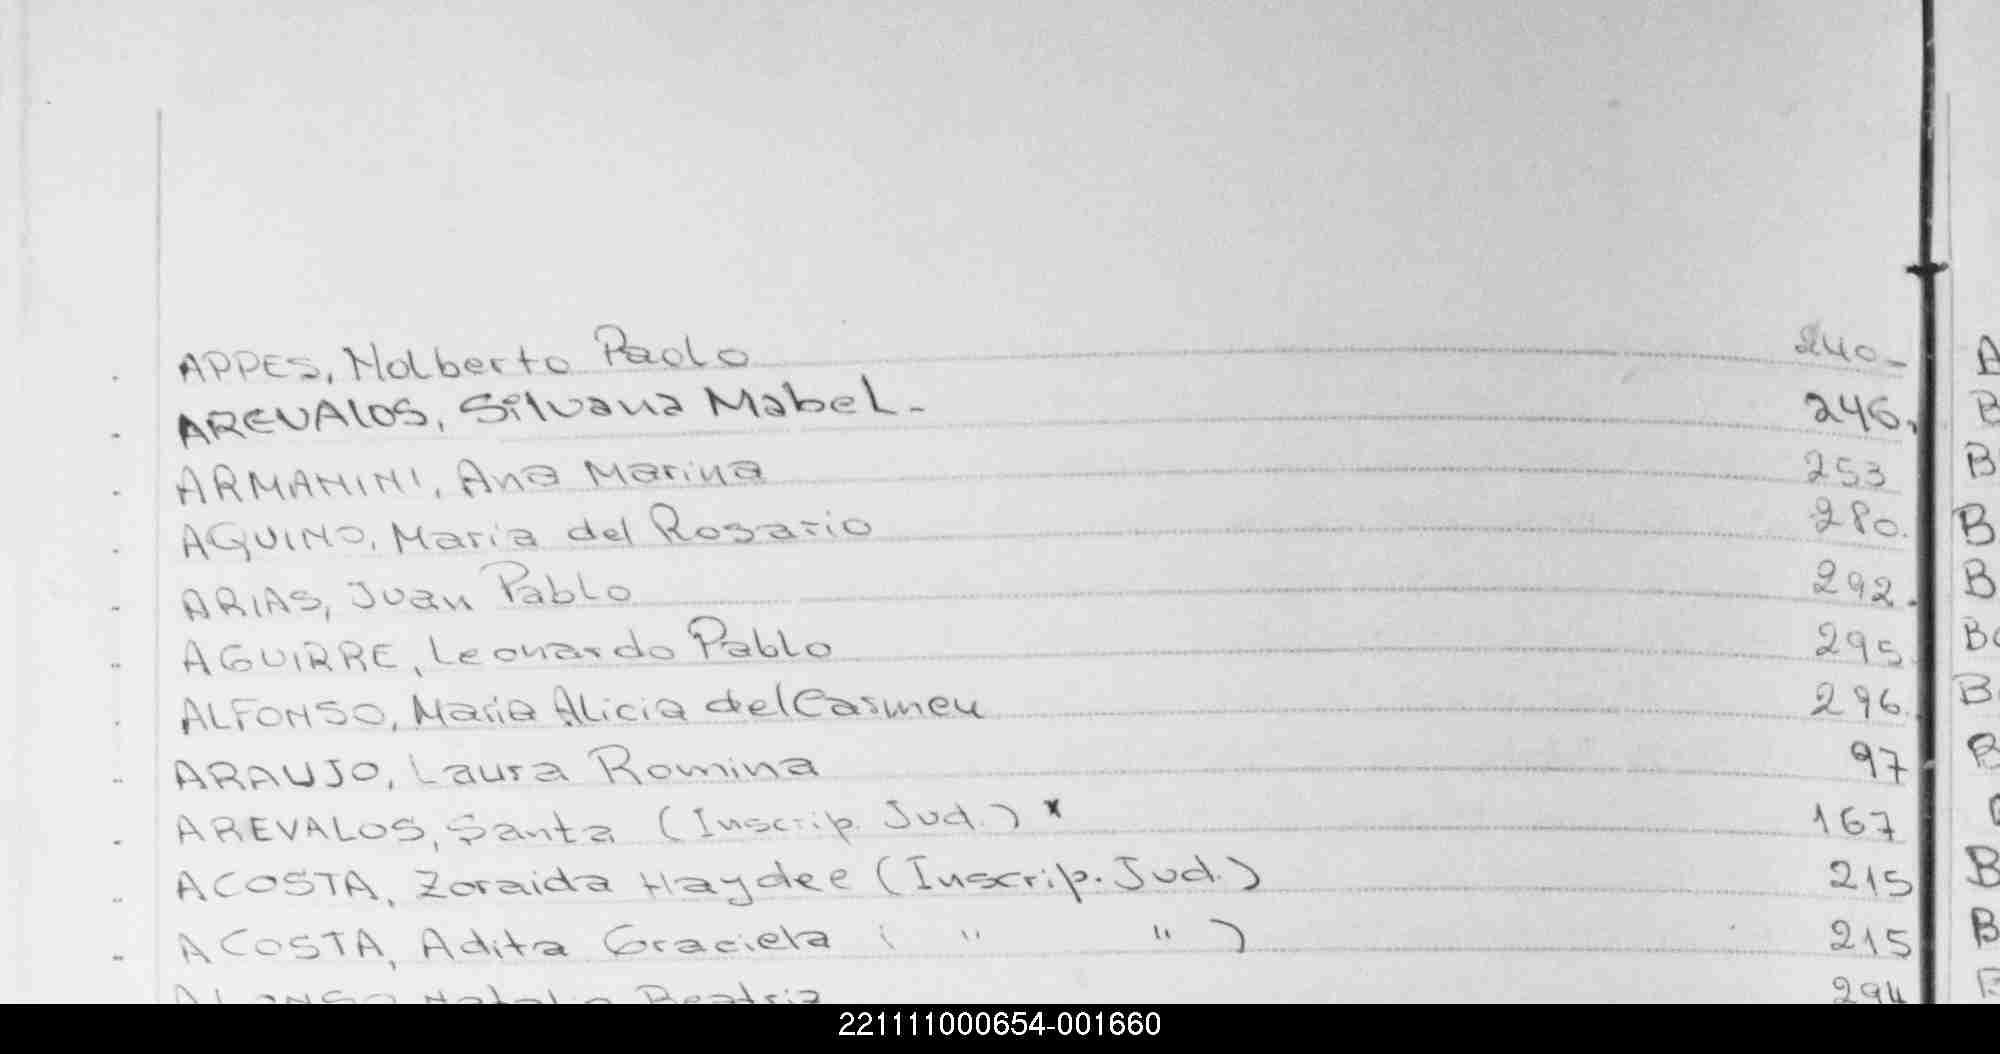 APPES, Nolberto Paolo 240-
AREVALOS, Silvana Mabel- 246.
ARMANINI, Ana Marina 253
AQUINO, Maria del Rosario 280.
ARIAS, Juan Pablo 292.
AGUIRRE, Leonardo Pablo 295
ALFONSO, Maria Alicia del Carmen 296
ARAUJO, Laura Romina 97
AREVALOS, Santa (Inscrip. Jud.) * 167
ACOSTA, Zoraida Haydee (Inscrip. Jud.) 215
ACOSTA, Adita Graciela ( " " ) 215
ALONSO Natalia Beatriz 294
221111000654-001660